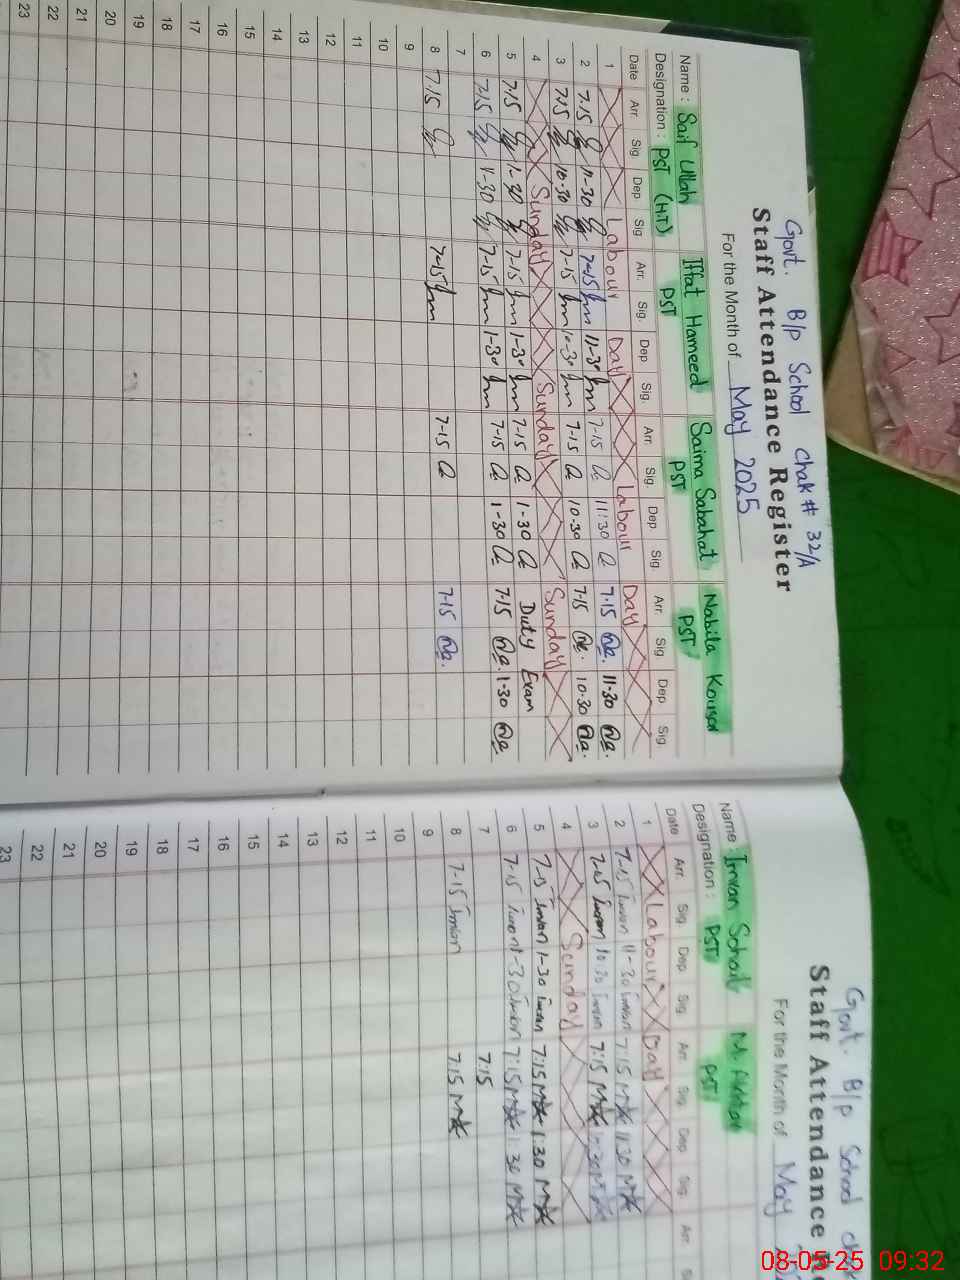 Govt. B/P School Chak # 32/A
Staff Attendance Register
For the Month of May 2025
Name : Saif Ullah Iffat Hameed Saima Sabahat Nabila Kousar
Designation : PST (H.T) PST PST PST
Date Arr. Sig. Dep Sig. Arr. Sig. Dep Sig. Arr. Sig. Dep. Sig. Arr. Sig Dep. Sig.
1 Labour Day Labour Day
2 7.15 11-30 7-15 11-30 7-15 11:30 7.15 11-30
3 7:15 10-30 7-15 10-30 7-15 10-30 7-15 10-30
4 Sunday Sunday Sunday
5 7:15 1-30 7-15 1-30 7-15 1-30 Duty Exam
6 7-15 1-30 7-15 1-30 7-15 1-30 7-15 1-30
7
8 7.15 7-15 7-15 7-15
9
10
11
12
13
14
15
16
17
18
19
20
21
22
23
Govt. B/P School
Staff Attendance
For the Month of May
Name : Imran Sohail M.
Designation : PST PST
Date Arr. Sig. Dep. Sig. Arr. Sig. Dep Sig. Arr.
1 Labour Day
2 7-15 Imran 11-30 Imran 7:15 11:30
3 7-15 Imran 10.30 Imran 7:15
4 Sunday
5 7-15 Imran 1-30 Imran 7:15 1:30
6 7-15 Imran 1-30 Imran 7:15 1:30
7 7:15
8 7-15 Imran 7:15
9
10
11
12
13
14
15
16
17
18
19
20
21
22
23
08-05-25 09:32